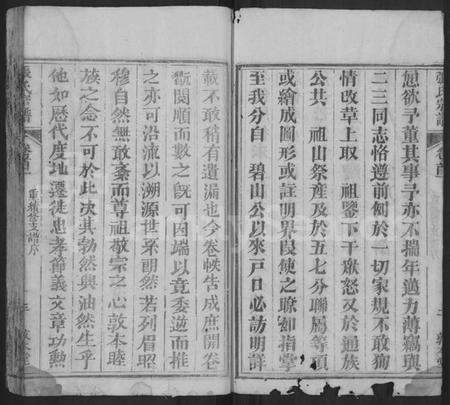 張氏宗譜
卷首
愆欲予董其事予亦不揣年邁力薄竊與
二三同志恪遵前例於一切家規不敢狥
情改草上取 祖鑒下干衆怒又於通族
公共 祖山祭產及於五七分聯屬等項
或繪成圖形或註明界叚使之瞭如指掌
至我分自 碧山公以來戸口必訪明詳
載不敢稍有遺漏也今卷帙告成庶開卷
觀閱順而數之旣可因端以竟委逆而推
之亦可沿流以溯源世系朗然若列眉昭
穆自然無敢紊而尊祖敬宗之心敦本睦
族之念不可於此次其勃然與油然生乎
他如歷代度地遷徙忠孝節義文章功勲
張氏宗譜
卷首
重修支譜序